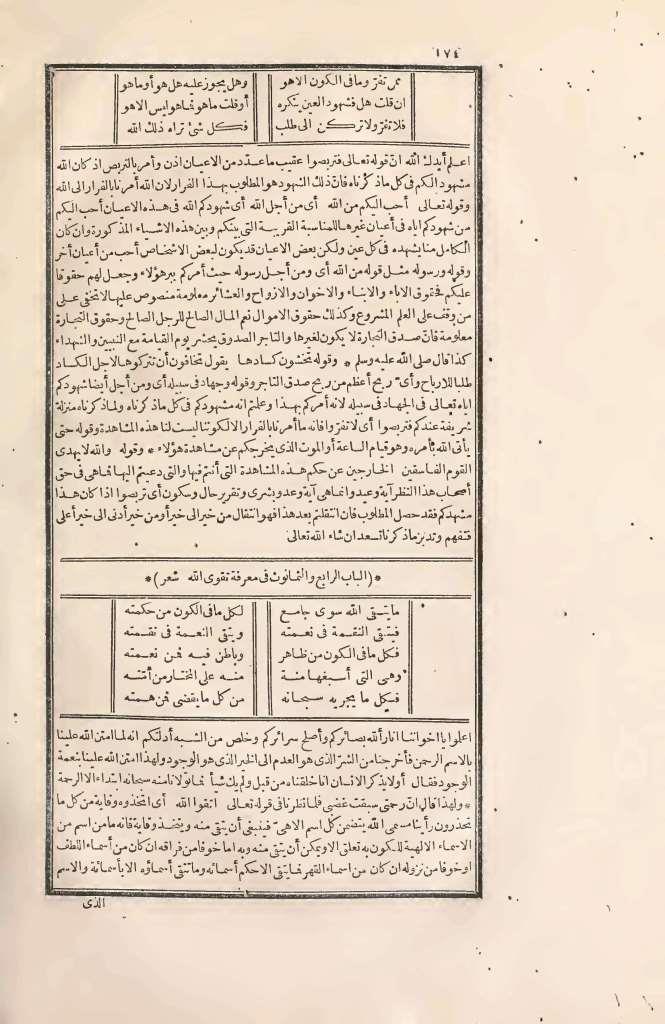 ١٧٤
ممن تفرّ وما فى الكون الا هو وهل يجوز عليه هل هو أو ما هو
ان قلت هل فشهود العين ينكره أو قلت ما هو فما هو ليس الا هو
فلا تفرّ ولا تركن الى طلب فكل شئ تراه ذلك الله
اعلم أيدك الله انّ قوله تعالى فتربصوا عقيب ما عدّد من الاعيان اذن وأمر بالتربص اذ كان الله
مشهودا لكم فى كل ما ذكرناه فانّ ذلك الشهود هو المطلوب بهذا الفرار لان الله أمرنا بالفرار الى الله
وقوله تعالى أحب اليكم من الله أى من أجل الله أى شهودكم الله فى هذه الاعيان أحب اليكم
من شهودكم اياه فى أعيان غيرها للمناسبة القريبة التى بينكم وبين هذه الاشياء المذكورة وان كان
الكامل منا يشهده فى كل عين ولكن بعض الاعيان قد يكون لبعض الاشخاص أحب من أعيان أخر
وقوله ورسوله مثل قوله من الله أى ومن أجل رسوله حيث أمركم ببر هؤلاء وجعل لهم حقوقا
عليكم فحقوق الاباء والابناء والاخوان والازواج والعشائر معلومة منصوص عليها لا تخفى على
من وقف على العلم المشروع وكذلك حقوق الاموال نعم المال الصالح للرجل الصالح وحقوق التجارة
معلومة فانّ صدق التجارة لا يكون لغيرها والتاجر الصدوق يحشر يوم القيامة مع النبيين والشهداء
كذا قال صلى الله عليه وسلم * وقوله تخشون كسادها يقول تخافون أن تتركوها لاجل الكساد
طلبا للارباح وأىّ ربح أعظم من ربح صدق التاجر وقوله وجهاد فى سبيله أى ومن أجل أيضا شهودكم
اياه تعالى فى الجهاد فى سبيله لانه أمركم بهذا وعلمتم انه مشهودكم فى كل ما ذكرناه ولما ذكرناه منزلة
شريفة عندكم فتربصوا أى لا تفرّوا فانه ما أمرنا بالفرار الا لكوننا ليست لنا هذه المشاهدة وقوله حتى
يأتى الله بأمره وهو قيام الساعة أو الموت الذى يخرجكم عن مشاهدة هؤلاء * وقوله والله لا يهدى
القوم الفاسقين الخارجين عن حكم هذه المشاهدة التى أنتم فيها والتى دعيتم اليها فما هى فى حق
أصحاب هذا النظر آية وعيد وانما هى آية وعد وبشرى وتقرير حال وسكون أى تربصوا اذا كان هذا
مشهدكم فقد حصل المطلوب فان انتقلتم بعد هذا فهو انتقال من خير الى خير أو من خير أدنى الى خير أعلى
فتفهم وتدبر ما ذكرنا تسعد ان شاء الله تعالى
*(الباب الرابع والثمانون فى معرفة تقوى الله شعر)*
ما يتقى الله سوى جامع لكل ما فى الكون من حكمته
فيتقى النقمة فى نعمته ويتقى النعمة فى نقمته
فكل ما فى الكون من ظاهر وباطن فيه فمن نعمته
وهى التى أسبغها منة منه على المختار من أمّته
فكل ما يجريه سبحانه من كل ما يقضى فمن همته
اعلموا يا اخواننا أنار الله بصائركم وأصلح سرائركم وخلص من الشبه أدلتكم انه لما امتن الله علينا
بالاسم الرحمن فأخرجنا من الشرّ الذى هو العدم الى الخير الذى هو الوجود ولهذا امتن الله علينا بنعمة
الوجود فقال أولا يذكر الانسان انا خلقناه من قبل ولم يك شيأ فما تولانا منه سبحانه ابتداء الا الرحمة
* ولهذا قال ان رحمتى سبقت غضبى فلما نظرنا فى قوله تعالى اتقوا الله أى اتخذوه وقاية من كل ما
تحذرون رأينا مسمى الله يتضمن كل اسم الاهىّ فينبغى أن يتقى منه ويتخذ وقاية فانه ما من اسم من
الاسماء الالهية للكون به تعلق الا ويمكن أن يتقى منه وبه اما خوفا من فراقه ان كان من أسماء اللطف
او خوفا من نزوله ان كان من اسماء القهر فما يتقى الا حكم أسمائه وما تتقى أسماؤه الا بأسمائه والاسم
الذى